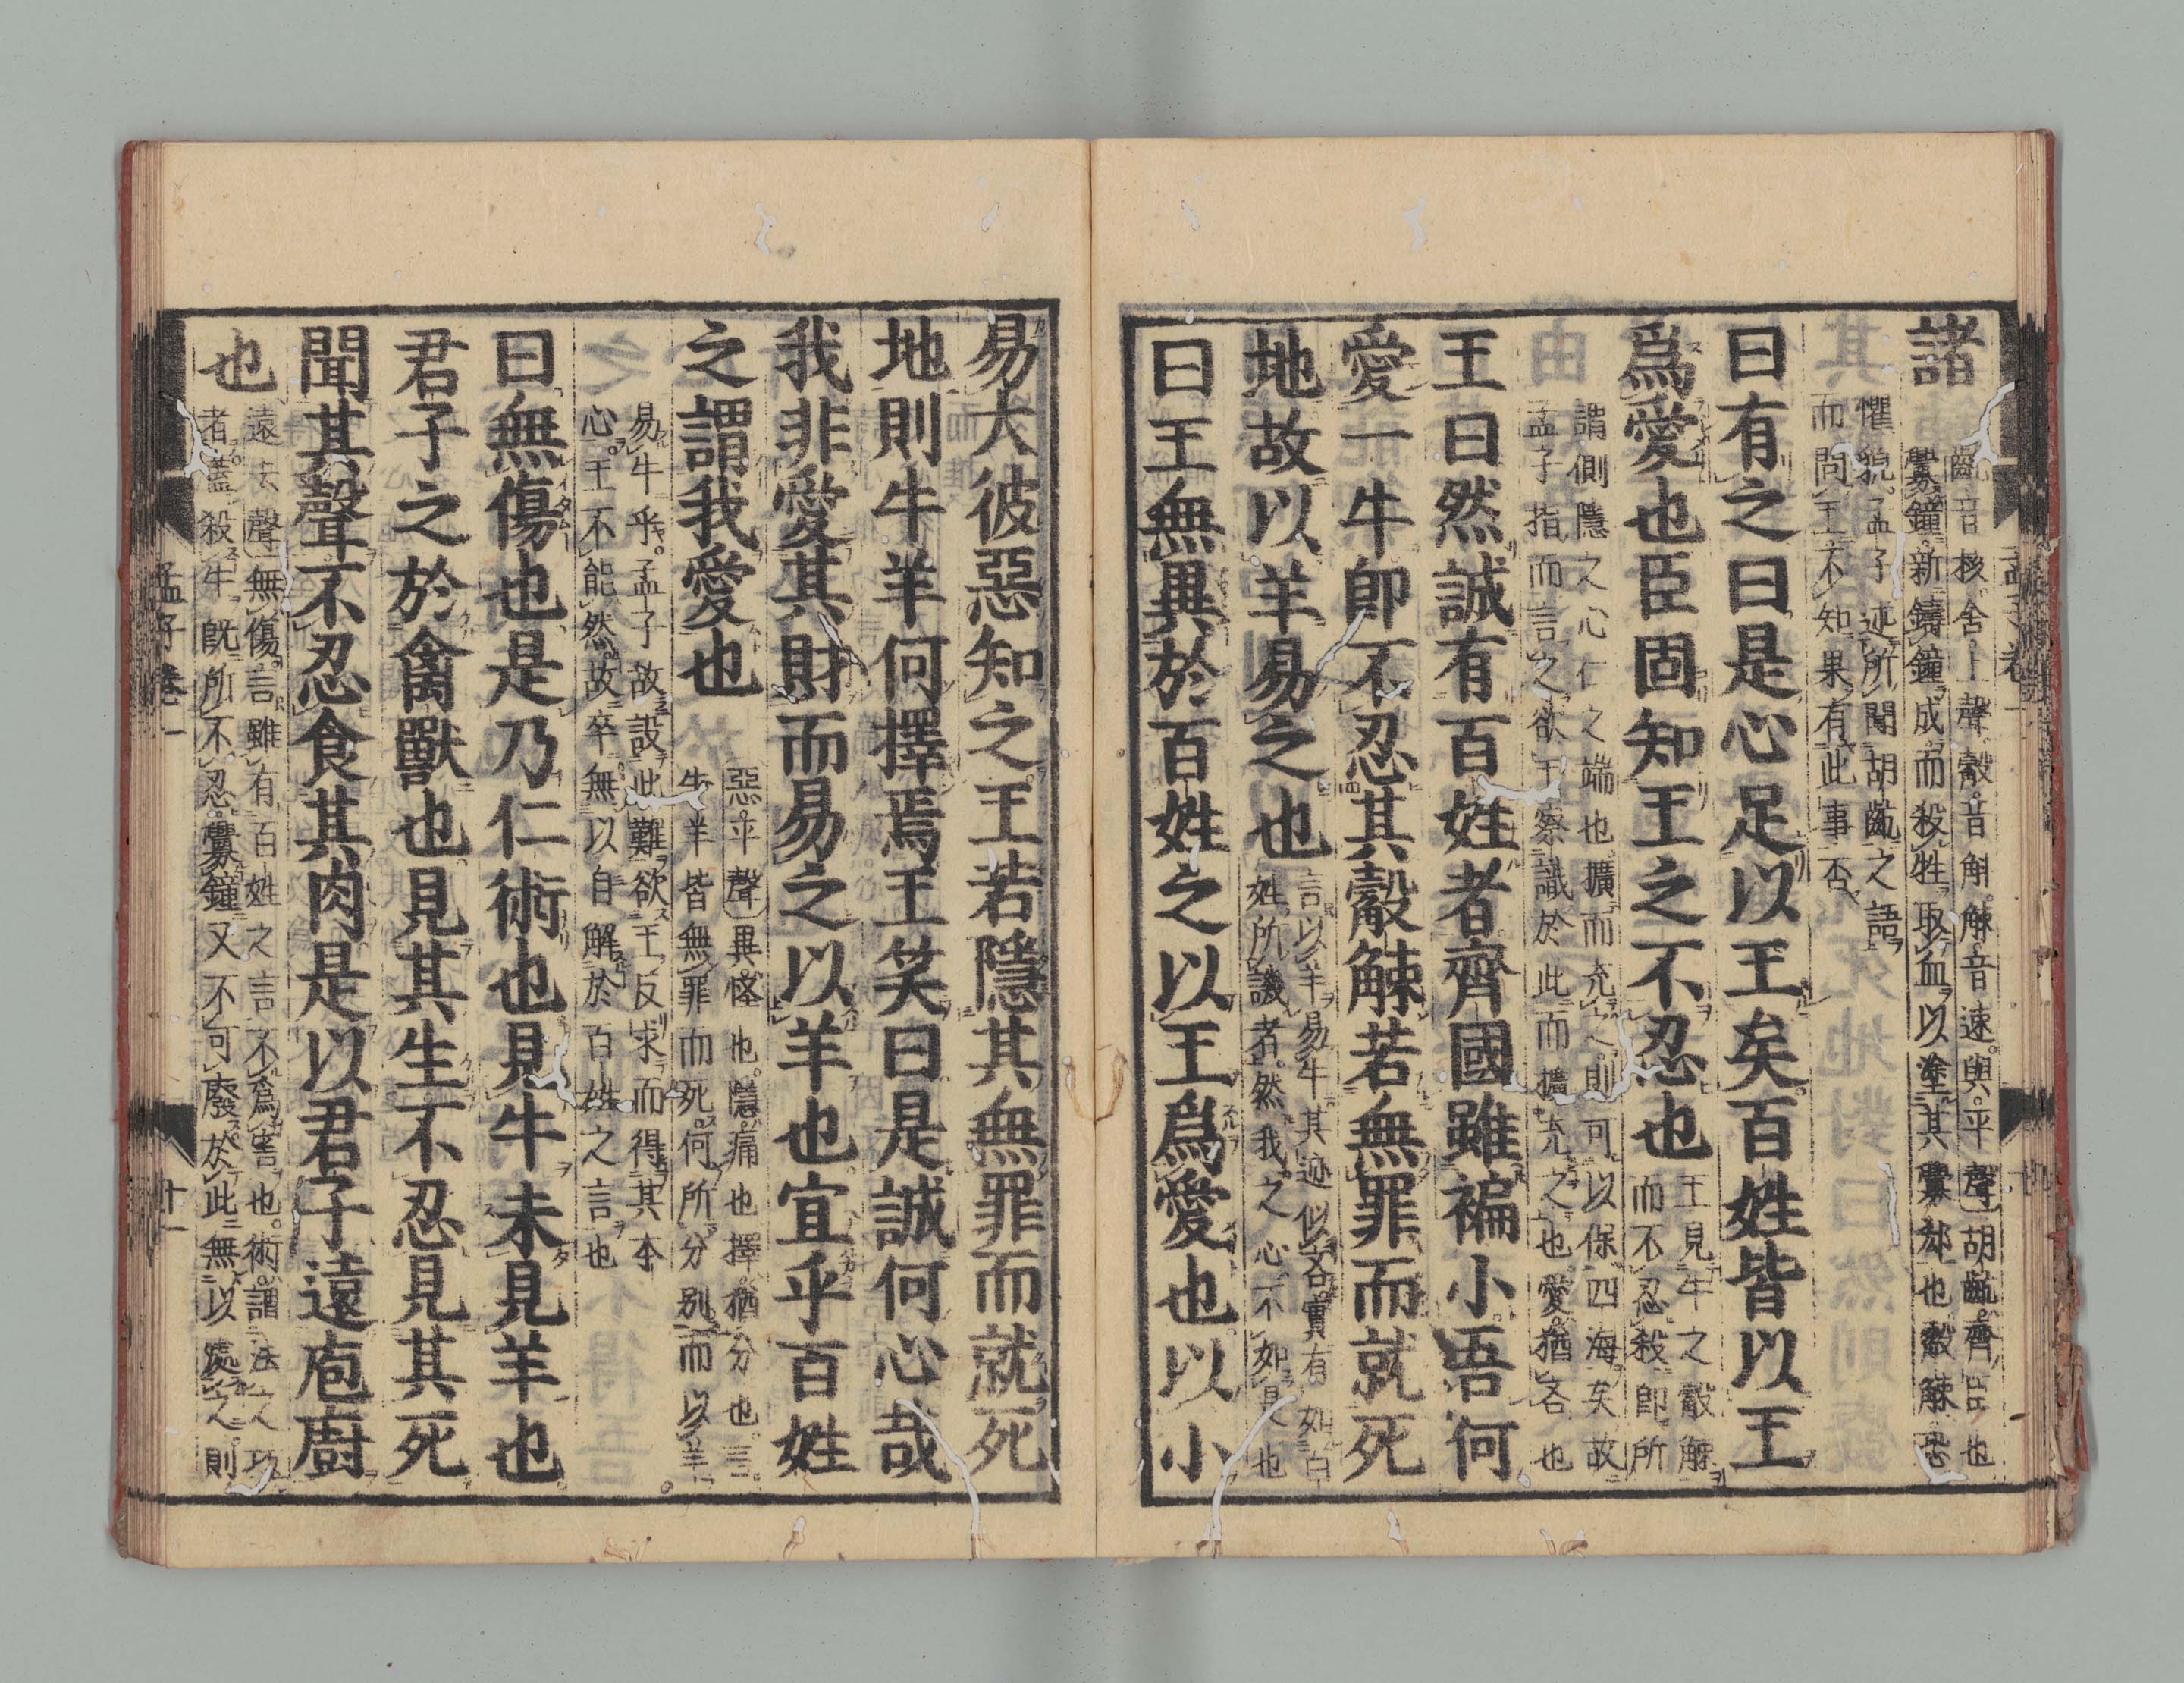 諸
齕音核舍上聲觳音斛觫音速與平聲胡齕齊臣也
釁鐘新鑄鐘成而殺牲取血以塗其釁郄也觳觫恐
懼貌孟子述所聞胡齕之語
而問王不知果有此事否
曰有之曰是心足以王矣百姓皆以王
爲愛也臣固知王之不忍也
王見牛之觳觫
而不忍殺卽所
謂側隱之心仁之端也擴而充之則可以保四海矣故
孟子指而言之欲王察識於此而擴充之也愛猶吝也
王曰然誠有百姓者齊國雖褊小吾何
愛一牛卽不忍其觳觫若無罪而就死
地故以羊易之也
言以羊易牛其迹似吝實有如百
姓所譏者然我之心不如是也
曰王無異於百姓之以王爲愛也以小
易大彼惡知之王若隱其無罪而就死
地則牛羊何擇焉王笑曰是誠何心哉
我非愛其財而易之以羊也宜乎百姓
之謂我愛也
惡平聲異怪也隱痛也擇猶分也言
牛羊皆無罪而死何所分別而以羊
易牛乎孟子故設此難欲王反求而得其本
心王不能然故卒無以自解於百姓之言也
曰無傷也是乃仁術也見牛未見羊也
君子之於禽獸也見其生不忍見其死
聞其聲不忍食其肉是以君子遠庖廚
也
遠去聲無傷言雖有百姓之言不爲害也術謂法之巧
者蓋殺牛既所不忍釁鐘又不可廢於此無以處之則
孟子卷一
十一